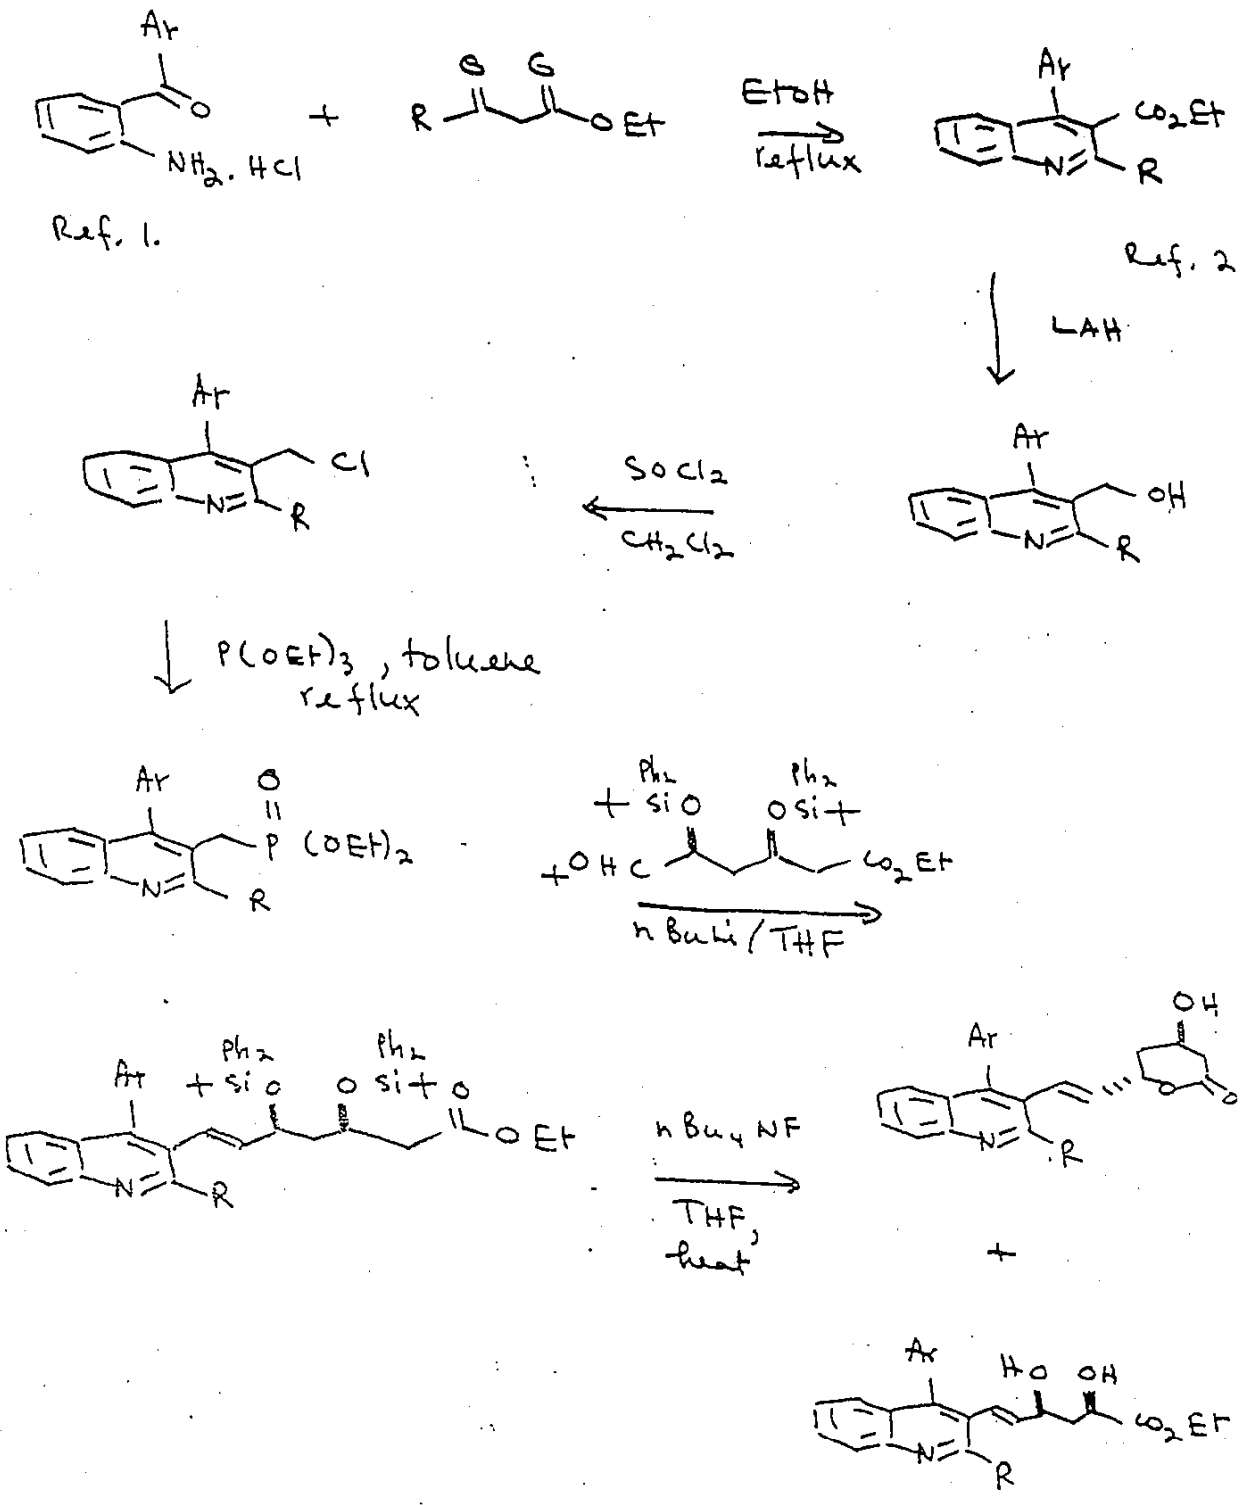 Ar
O
NH2. HCl
Ref. 1.
+
R
O
O
OEt
EtOH
reflux
Ar
CO2Et
N
R
Ref. 2
LAH
Ar
OH
N
R
SOCl2
CH2Cl2
Ar
Cl
N
R
P(OEt)3, toluene
reflux
Ar
O
P (OEt)2
N
R
Ph2
Ph2
+ Si O
O Si +
+ OHC
CO2Et
nBuLi/THF
Ar
Ph2
Ph2
+ Si O
O Si +
O
OEt
N
R
nBu4NF
THF,
heat
Ar
OH
O
O
N
R
+
Ar
HO
OH
CO2Et
N
R